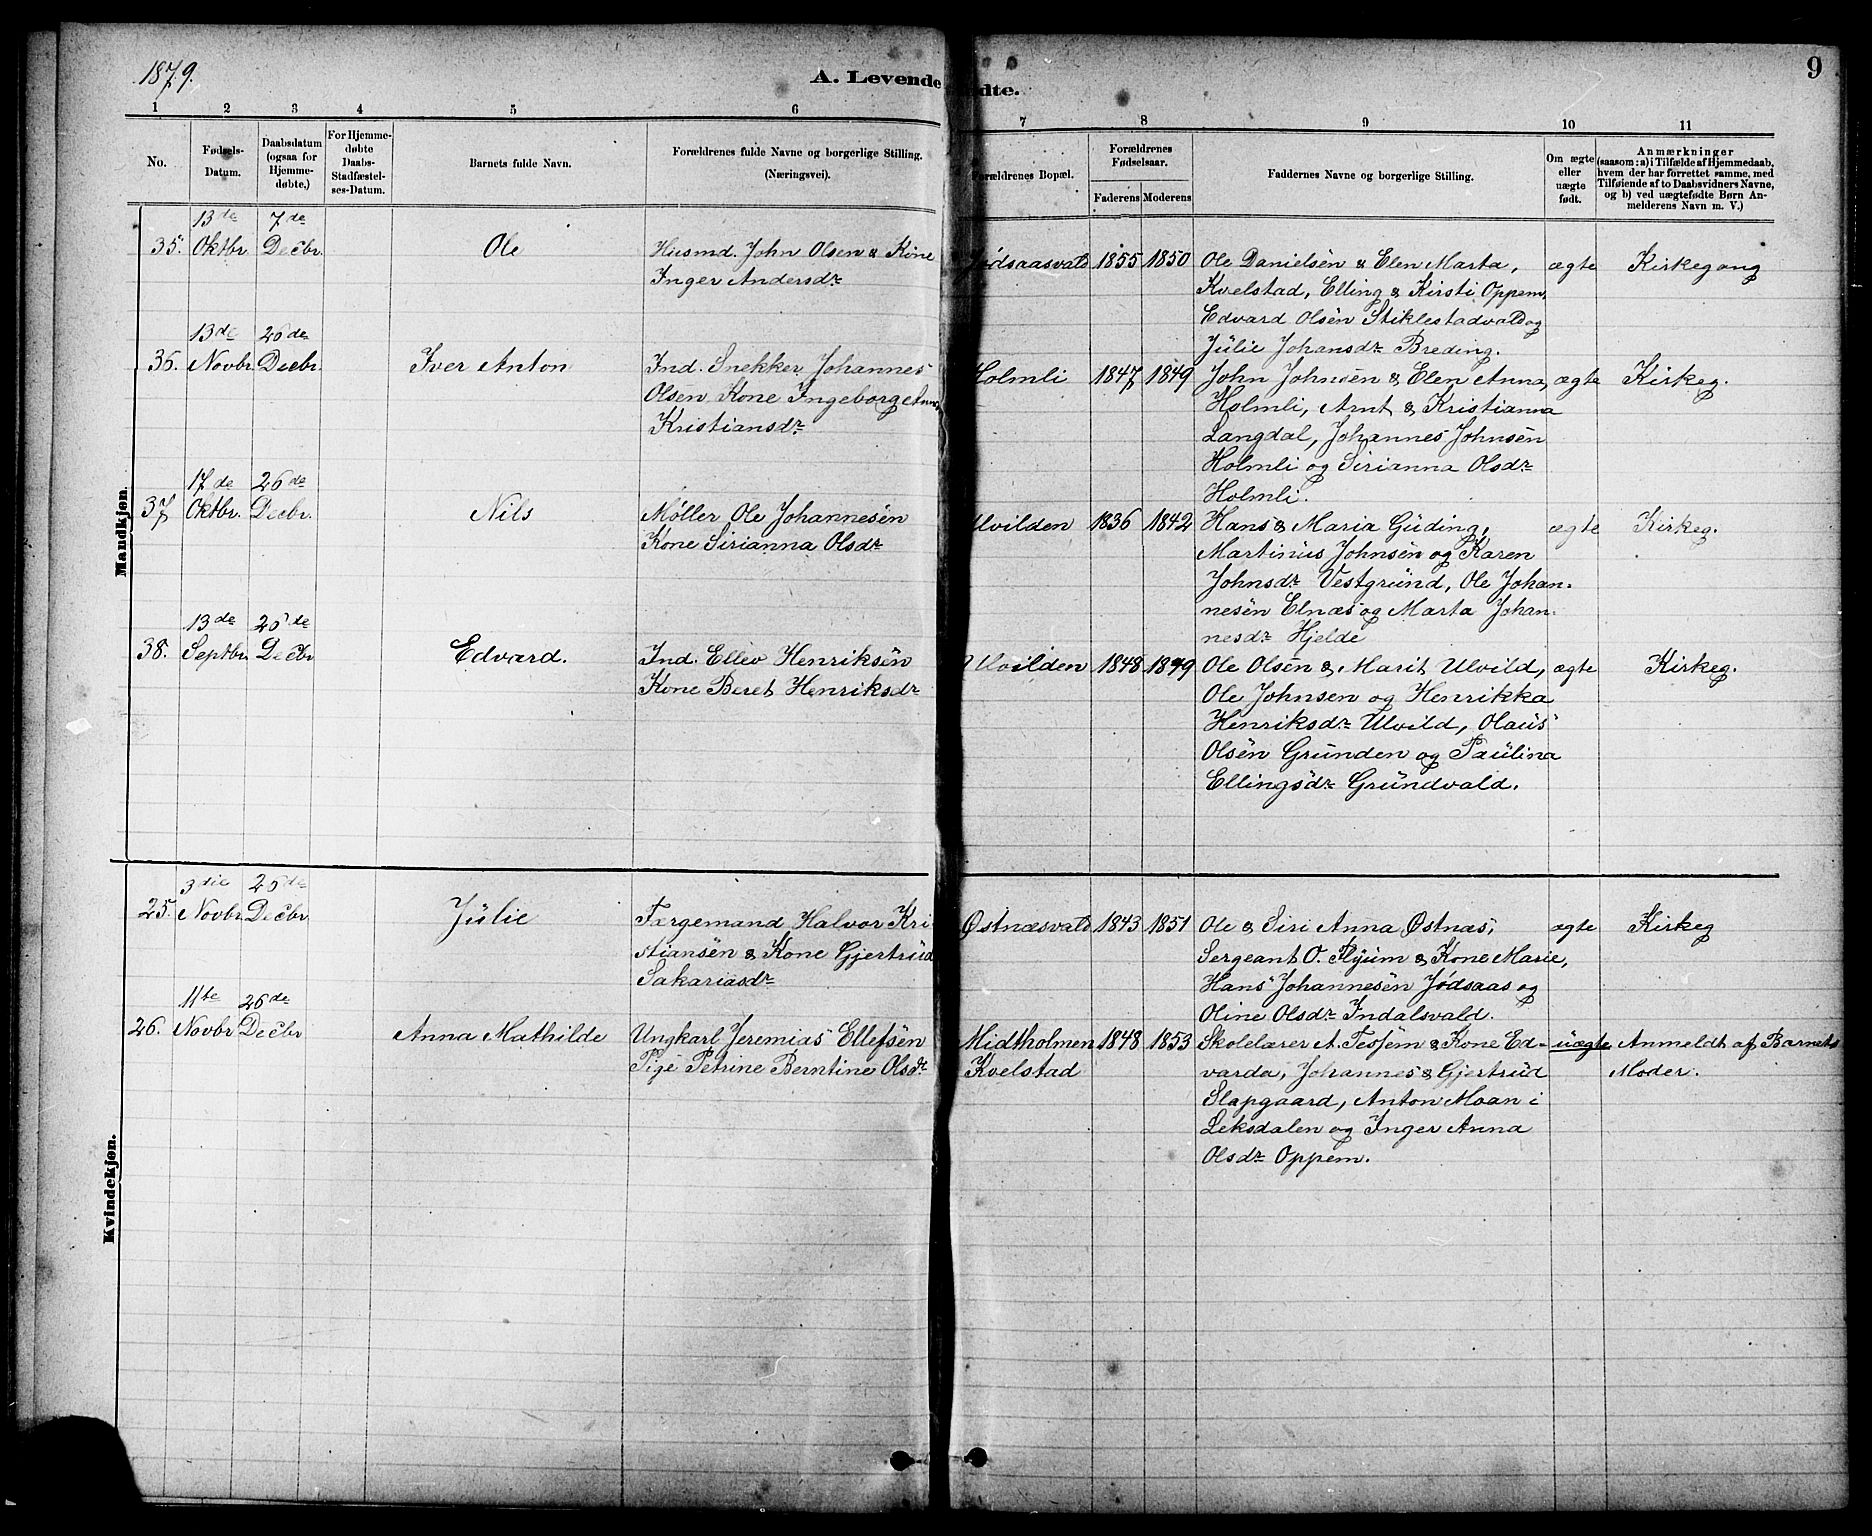 1879.
A. Levende
dte.
9
1
2
3
4
5
6
7
8
9
10
11
No.
Fødsels-
Datum.
Daabsdatum
(ogsaa for
Hjemme-
døbte.)
For Hjemme-
døbte
Daabs-
Stadfæstel-
ses-Datum.
Barnets fulde Navn.
Forældrenes fulde Navne og borgerlige Stilling.
(Næringsvei).
Forældrenes Bopæl.
Forældrenes
Fødselsaar.
Faderens
Moderens
Faddernes Navne og borgerlige Stilling.
Om ægte
eller
uægte
født.
Anmærkninger
(saasom: a) i Tilfælde af Hjemmedaab,
hvem der har forrettet samme, med
Tilføiende af to Daabsvidners Navne,
og b) ved uægtefødte Børn An-
melderens Navn m. V.)
Mandkjøn.
13de 7de
35. Oktbr. Decbr. Ole Husmd. John Olsen & Kone Jødsaasvald 1855 1850 Ole Danielsen & Elen Marta, ægte Kirkegang
Inger Andersdr Kvelstad, Elling & Kirsti Oppem,
Edvard Olsen Stiklestadvald og
Julie Johansdr Breding.
13de 26de
36. Novbr. Decbr. Iver Anton Ind. Snekker Johannes Holmli 1847 1849 John Johnsen & Elen Anna, ægte Kirkeg.
Olsen Kone Ingeborg Anna Holmli, Arnt & Kristianna
Kristiansdr Langdal, Johannes Johnsen
Holmli og Sirianna Olsdr
Holmli.
17de 26de
37 Oktbr. Decbr. Nils Møller Ole Johannesen Ulvilden 1836 1842 Hans & Maria Guding, ægte Kirkeg.
Kone Sirianna Olsdr Martinus Johnsen og Karen
Johnsdr Vestgrund, Ole Johan-
nesen Elnæs og Marta Johan-
nesdr Hjelde
13de 26de
38. Septbr. Decbr Edvard. Ind. Ellev Henriksen Ulvilden 1848 1849 Ole Olsen & Marit Ulvild, ægte Kirkeg.
Kone Beret Henriksdr Ole Johnsen og Henrikka
Henriksdr Ulvild, Olaus
Olsen Grunden og Paulina
Ellingsdr Grundvald.
Kvindekjøn.
3die 26de
25. Novbr. Decbr Julie Færgemand Halvor Kri Østnæsvald 1843 1851 Ole & Siri Anna Østnæs, ægte Kirkeg
stiansen & Kone Gjertrud Sergeant O. Flyum & Kone Marie,
Sakariasdr Hans Johannesen Jødsaas og
Oline Olsdr Indalsvald.
11te 26de
26. Novbr Decbr Anna Mathilde Ungkarl Jeremias Ellefsen Midtholmen 1848 1853 Skolelærer A. Tessem & Kone Ed- uægte Anmeldt af Barnets
Pige Petrine Berntine Olsdr Kvelstad varda, Johannes & Gjertrud Moder.
Slapgaard, Anton Moan i
Leksdalen og Inger Anna
Olsdr Oppem.